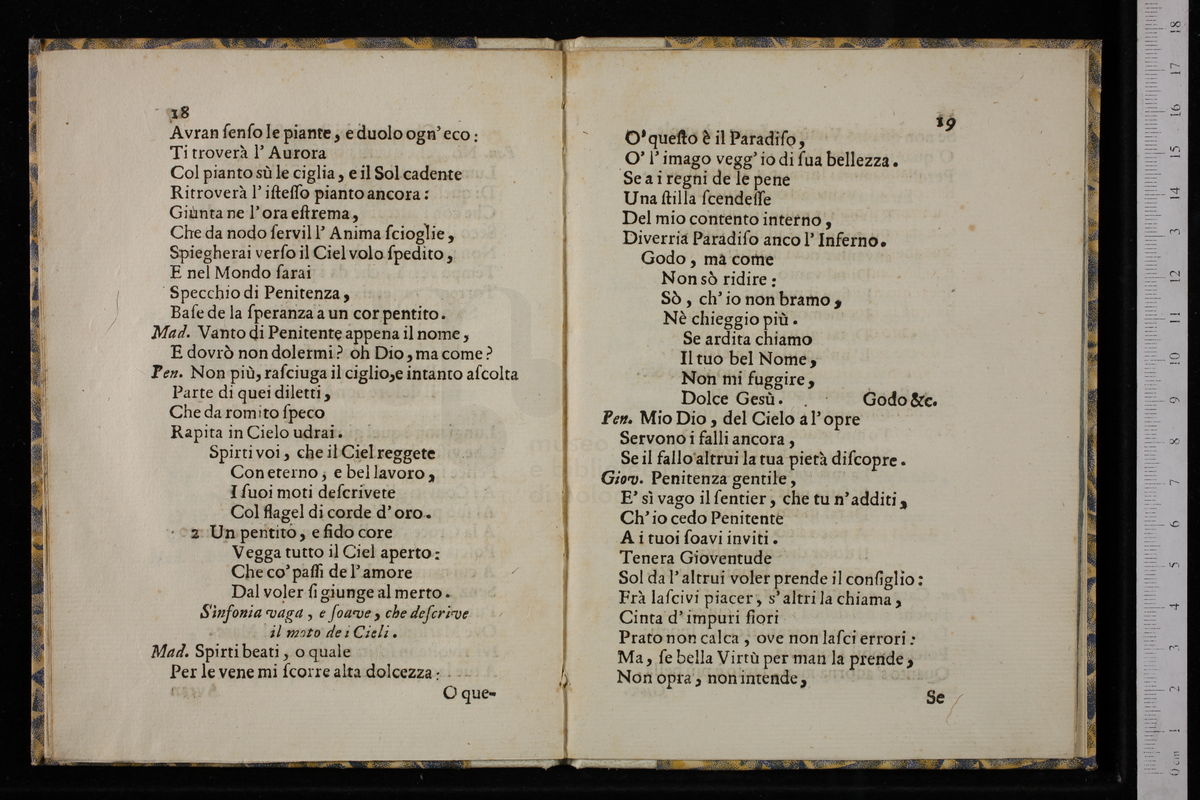 18
Avran ſenſo le piante, e duolo ogn' eco:
Ti troverà l' Aurora
Col pianto sù le ciglia, e il Sol cadente
Ritroverà l' iſteſſo pianto ancora:
Giunta ne l' ora eſtrema,
Che da nodo ſervil l' Anima ſcioglie,
Spiegherai verſo il Ciel volo ſpedito,
E nel Mondo ſarai
Specchio di Penitenza,
Baſe de la ſperanza a un cor pentito.
Mad. Vanto di Penitente appena il nome,
E dovrò non dolermi? oh Dio, ma come?
Pen. Non più, raſciuga il ciglio, e intanto aſcolta
Parte di quei diletti,
Che da romito ſpeco
Rapita in Cielo udrai.
Spirti voi, che il Ciel reggete
Con eterno, e bel lavoro,
I ſuoi moti deſcrivete
Col flagel di corde d' oro.
2 Un pentito, e fido core
Vegga tutto il Ciel aperto:
Che co' paſſi de l' amore
Dal voler ſi giunge al merto.
Sinfonia vaga, e ſoave, che deſcrive
il moto de i Cieli.
Mad. Spirti beati, o quale
Per le vene mi ſcorre alta dolcezza:
O que-
19
O' queſto è il Paradiſo,
O' l' imago vegg' io di ſua bellezza.
Se a i regni de le pene
Una ſtilla ſcendeſſe
Del mio contento interno,
Diverria Paradiſo anco l' Inferno.
Godo, ma come
Non sò ridire:
Sò, ch' io non bramo,
Nè chieggio più.
Se ardita chiamo
Il tuo bel Nome,
Non mi fuggire,
Dolce Gesù. Godo &c.
Pen. Mio Dio, del Cielo a l' opre
Servono i falli ancora,
Se il fallo altrui la tua pietà diſcopre.
Giov. Penitenza gentile,
E' sì vago il ſentier, che tu n' additi,
Ch' io cedo Penitente
A i tuoi ſoavi inviti.
Tenera Gioventude
Sol da l' altrui voler prende il conſiglio:
Frà laſcivi piacer, s' altri la chiama,
Cinta d' impuri fiori
Prato non calca, ove non laſci errori:
Ma, ſe bella Virtù per man la prende,
Non opra, non intende,
Se